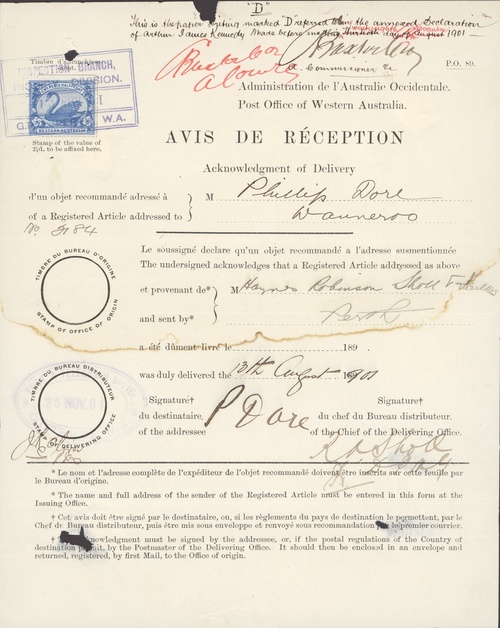 "D"
This is the paper writing marked D referred to in the annexed declaration
of Arthur James Kennedy made before me this thirtieth day of August 1901 —
A Commissioner &c
P.O. 89.
Timbre d'affranchissement.
INSPECTION BRANCH,
DIVISION.
G. W.A.
WESTERN AUSTRALIA
Stamp of the value of
2½d. to be affixed here.
Administration de l'Australie Occidentale.
Post Office of Western Australia.
AVIS DE RÉCEPTION
Acknowledgment of Delivery
d'un objet recommandé adressé à
of a Registered Article addressed to
M Phillip Dore
Wanneroo
No. 3184
Le soussigné declare qu'un objet recommandé a l'adresse susmentionnée
The undersigned acknowledges that a Registered Article addressed as above
et provenant de* M Haynes Robinson Sholl &
and sent by* Perth
TIMBRE DU BUREAU D'ORIGINE
STAMP OF OFFICE OF ORIGIN
a été dûment livré le 189
was duly delivered the 13th August 1901
TIMBRE DU BUREAU DISTRIBUTEUR
STAMP OF DELIVERING OFFICE
Signature†
du destinataire,
of the addressee
P Dore
Signature†
du chef du Bureau distributeur.
of the Chief of the Delivering Office.
* Le nom et l'adresse complète de l'expéditeur de l'objet recommandé doivent être inscrits sur cette feuille par
le Bureau d'origine.
* The name and full address of the sender of the Registered Article must be entered in this form at the
Issuing Office.
† Cet avis doit être signé par le destinataire, ou, si les règlements du pays de destination le permettent, par le
Chef du Bureau distributeur, puis être mis sous enveloppe et renvoyé sous recommandation par le premier courrier.
† Acknowledgment must be signed by the addressee, or, if the postal regulations of the Country of
destination permit, by the Postmaster of the Delivering Office. It should then be enclosed in an envelope and
returned, registered, by first Mail, to the Office of origin.